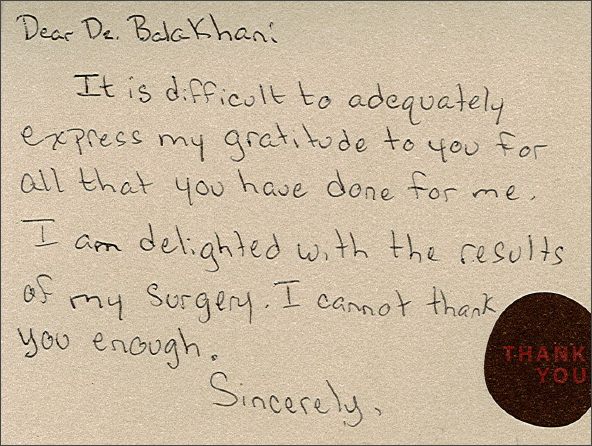 Dear Dr. Balakhani:
It is difficult to adequately
express my gratitude to you for
all that you have done for me.
I am delighted with the results
of my surgery. I cannot thank
you enough.
Sincerely,
THANK
YOU